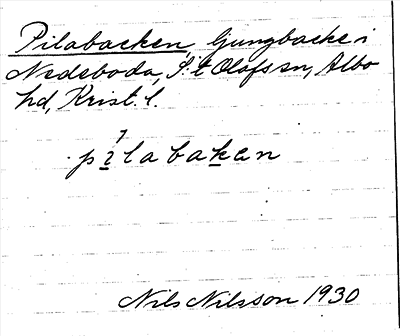 Pilabacken, Ljungbacke i
Nedeboda, S:t Olofs sn, Albo
hd, Krist. l.
pilabaken
Nils Nilsson 1930